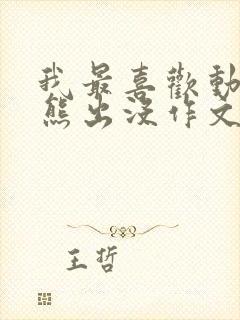 我最喜歡動
熊出沒作文
王哲